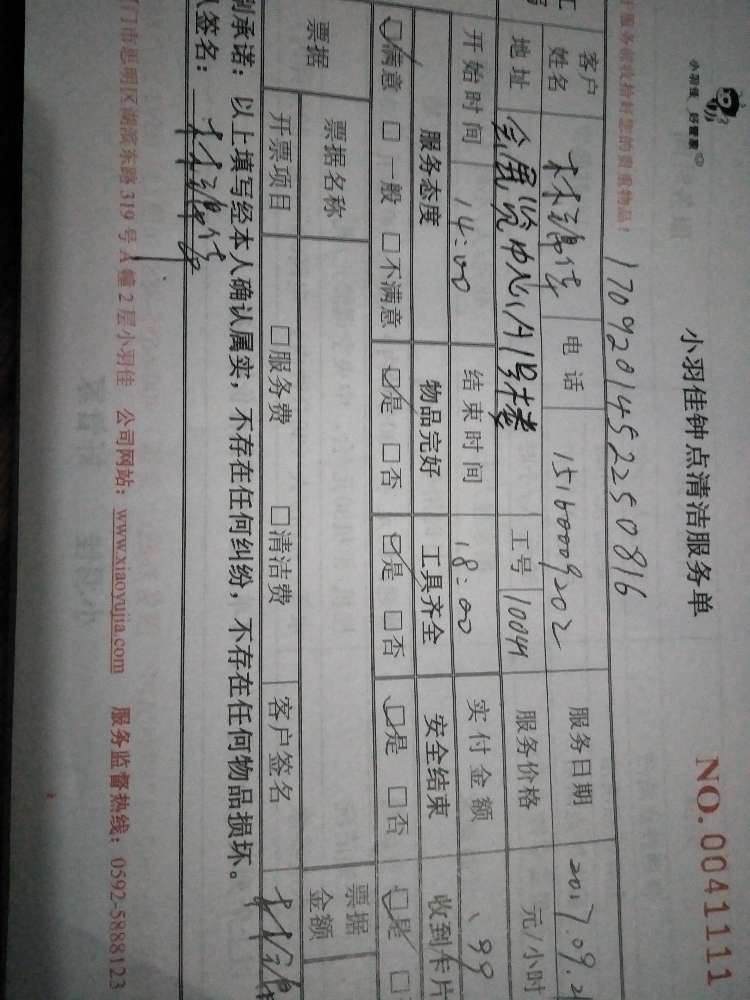 小羽佳 好管家
小羽佳钟点清洁服务单
NO. 0041111
服务前收拾好您的贵重物品！
1709201452250816
客户姓名 电话 15160009202 服务日期 2017.09.2
地址 会展览中心A1号楼 工号 服务价格 元/小时
开始时间 14:00 结束时间 18:00 实付金额
服务态度 物品完好 工具齐全 安全结束 收到卡片
☑满意 □一般 □不满意 ☑是 □否 ☑是 □否 ☑是 □否 ☑是 □
票据 票据名称 票据金额
开票项目 □服务费 □清洁费 客户签名
承诺：以上填写经本人确认属实，不存在任何纠纷，不存在任何物品损坏。
签名：
门市思明区湖滨东路319号A幢2层小羽佳 公司网站：www.xiaoyujia.com 服务监督热线：0592-5888123